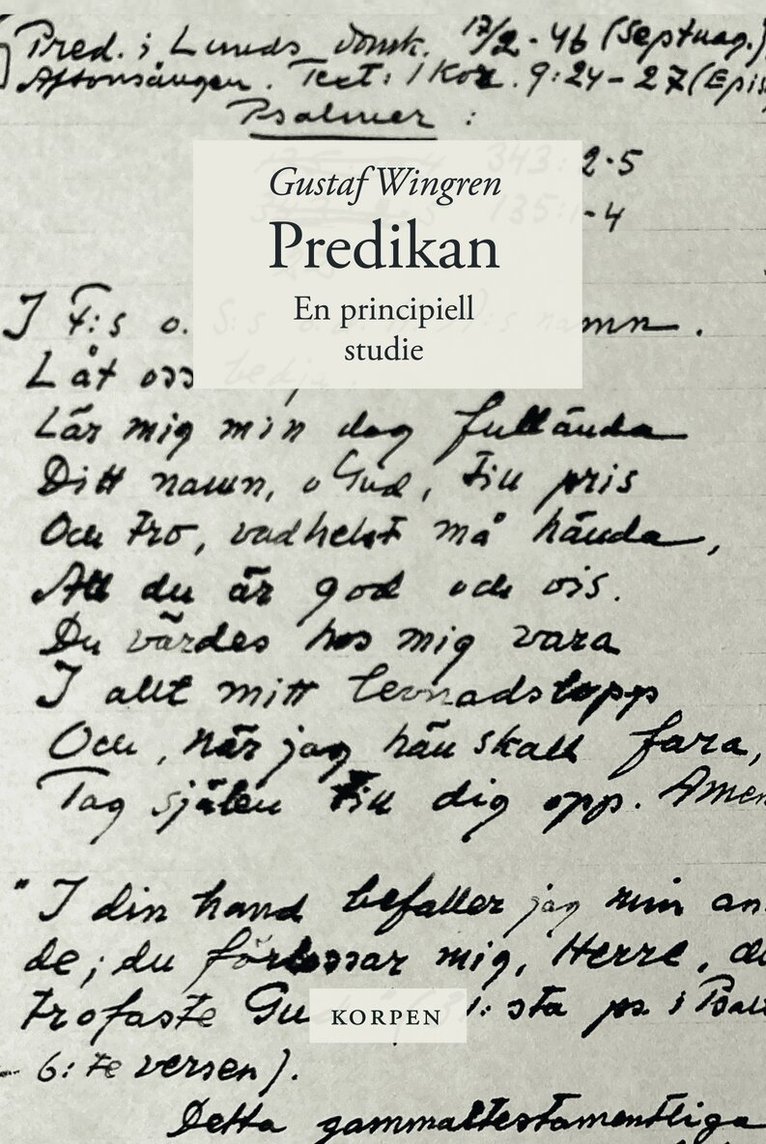 Pred. i Lunds domk. 17/2 - 46 (Septuag.)
Aftonsången. Text: 1 Kor. 9:24-27 (Epis
Psalmer :
343: 2-5
135: 1-4
Gustaf Wingren
Predikan
En principiell
studie
I F:s o. S:s namn.
Låt oss bedja.
Lär mig min dag fullända
Ditt namn, o Gud, till pris
Och tro, vadhelst må hända,
Att du är god och vis.
Du värdes hos mig vara
I allt mitt levnadslopp
Och, när jag hän skall fara,
Tag själen till dig opp. Amen
"I din hand befaller jag min an-
de; du förlossar mig, Herre, du
trofaste Gu 31: sta ps. i Psalt
- 6: te versen).
KORPEN
Detta gammaltestamentliga